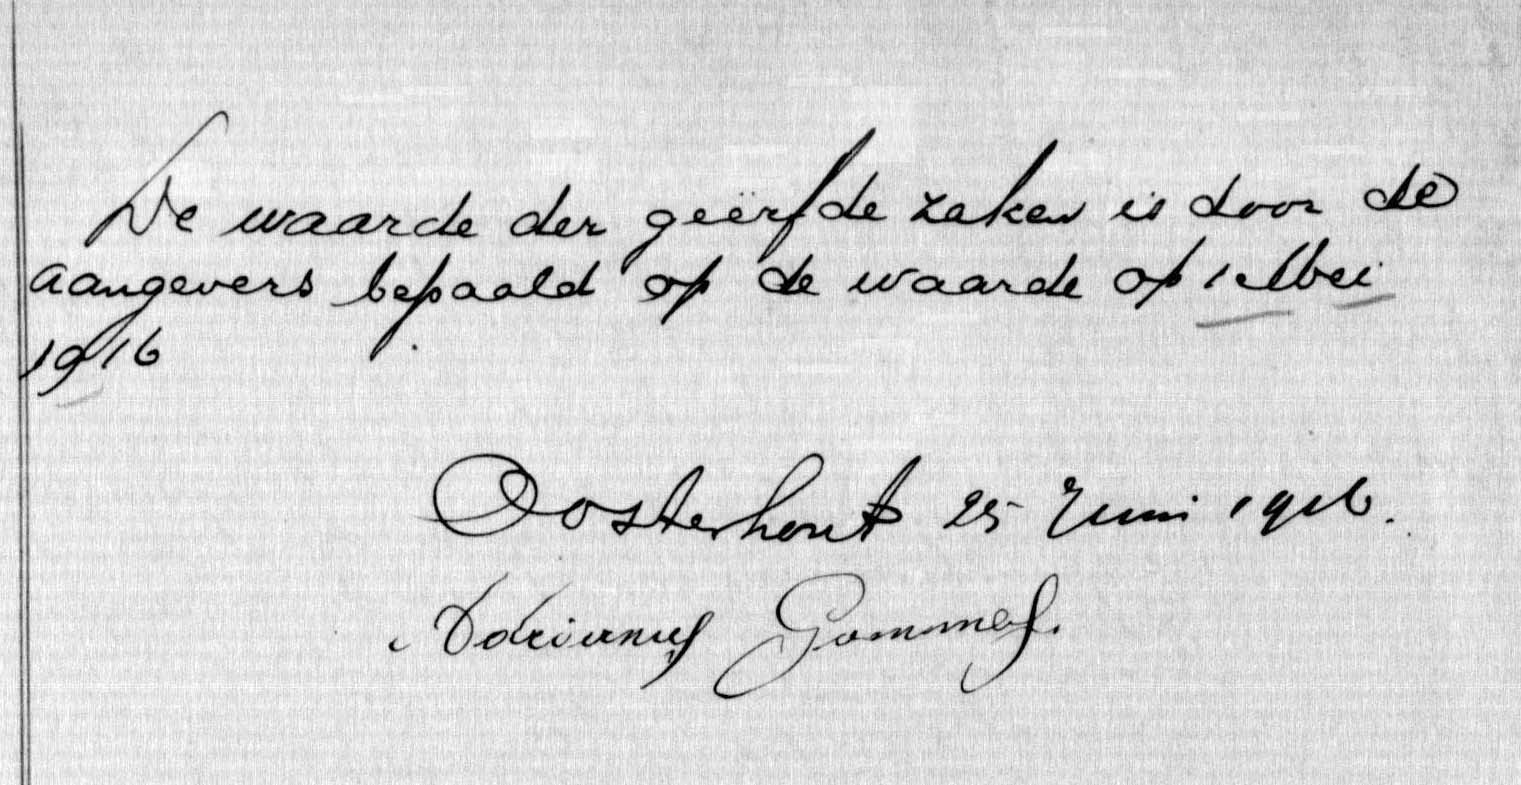 De waarde der geërfde zaken is door de
aangevers bepaald op de waarde op 1 Mei
1916
Oosterhout 25 Juni 1916.
Adrianus Gommers.